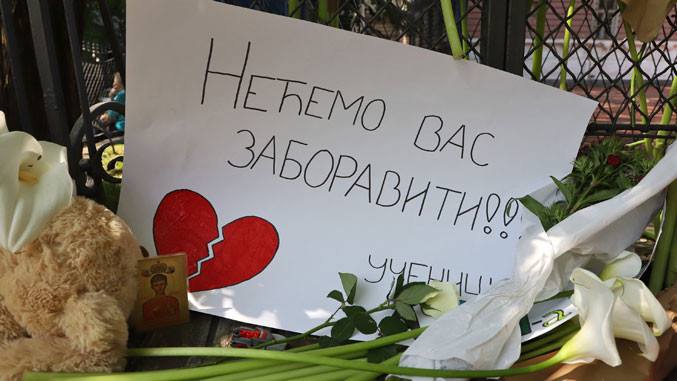 НЕЋЕМО ВАС
ЗАБОРАВИТИ!!!
УЧЕНИЦИ